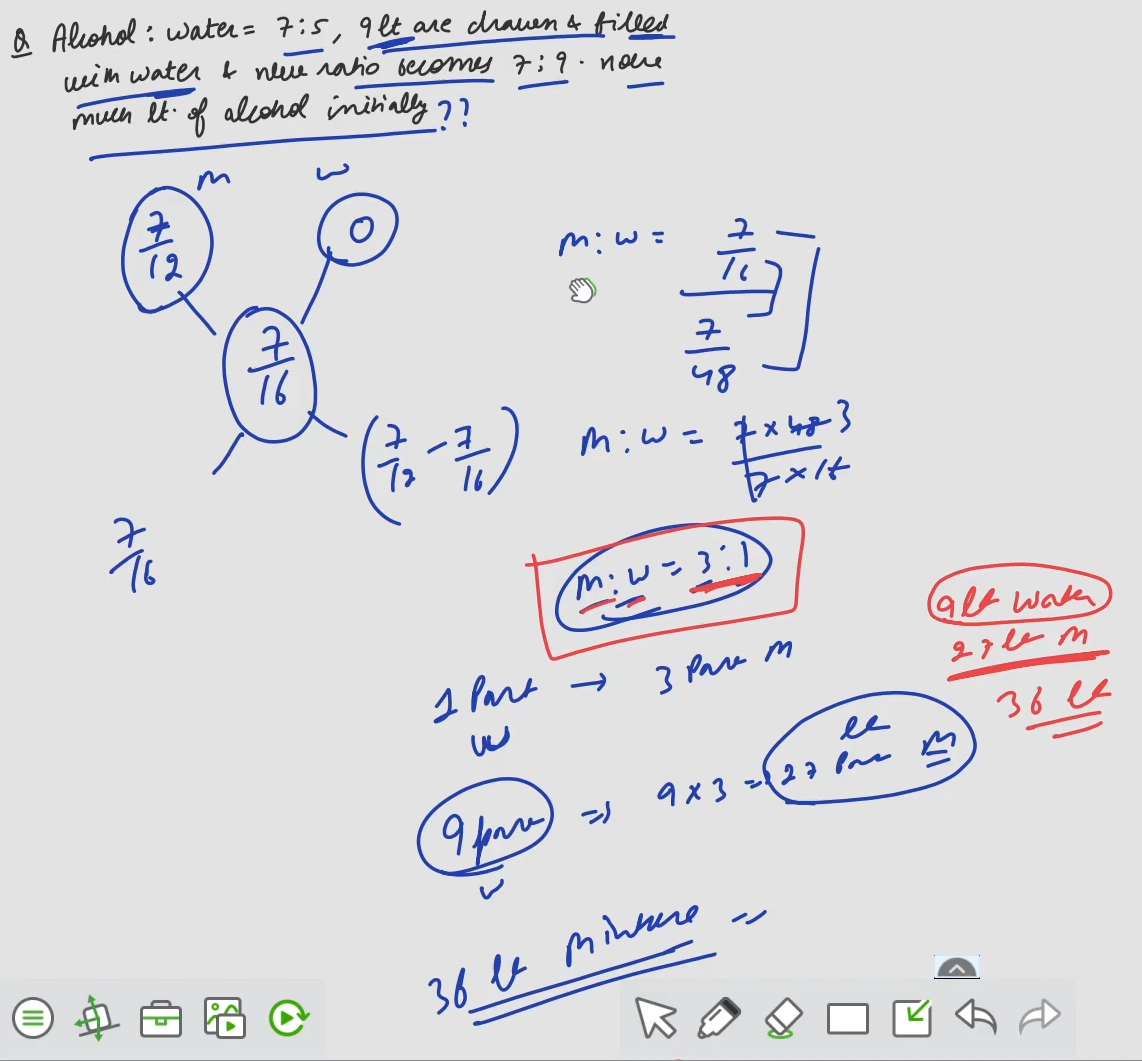 Q Alcohol : water = 7:5, 9 lt are drawn & filled
with water & new ratio becomes 7:9. now
much lt. of alcohol initially??
m w
7/12 0
7/16
(7/12 - 7/16)
7/16
m : w = 7/16 / 7/48
m : w = 7 x 48 3 / 7 x 16
m : w = 3 : 1
1 Part → 3 Part m
w
9 part ⇒ 9 x 3 = 27 Part m
lt
w
36 lt mixture =
9 lt water
27 lt m
36 lt